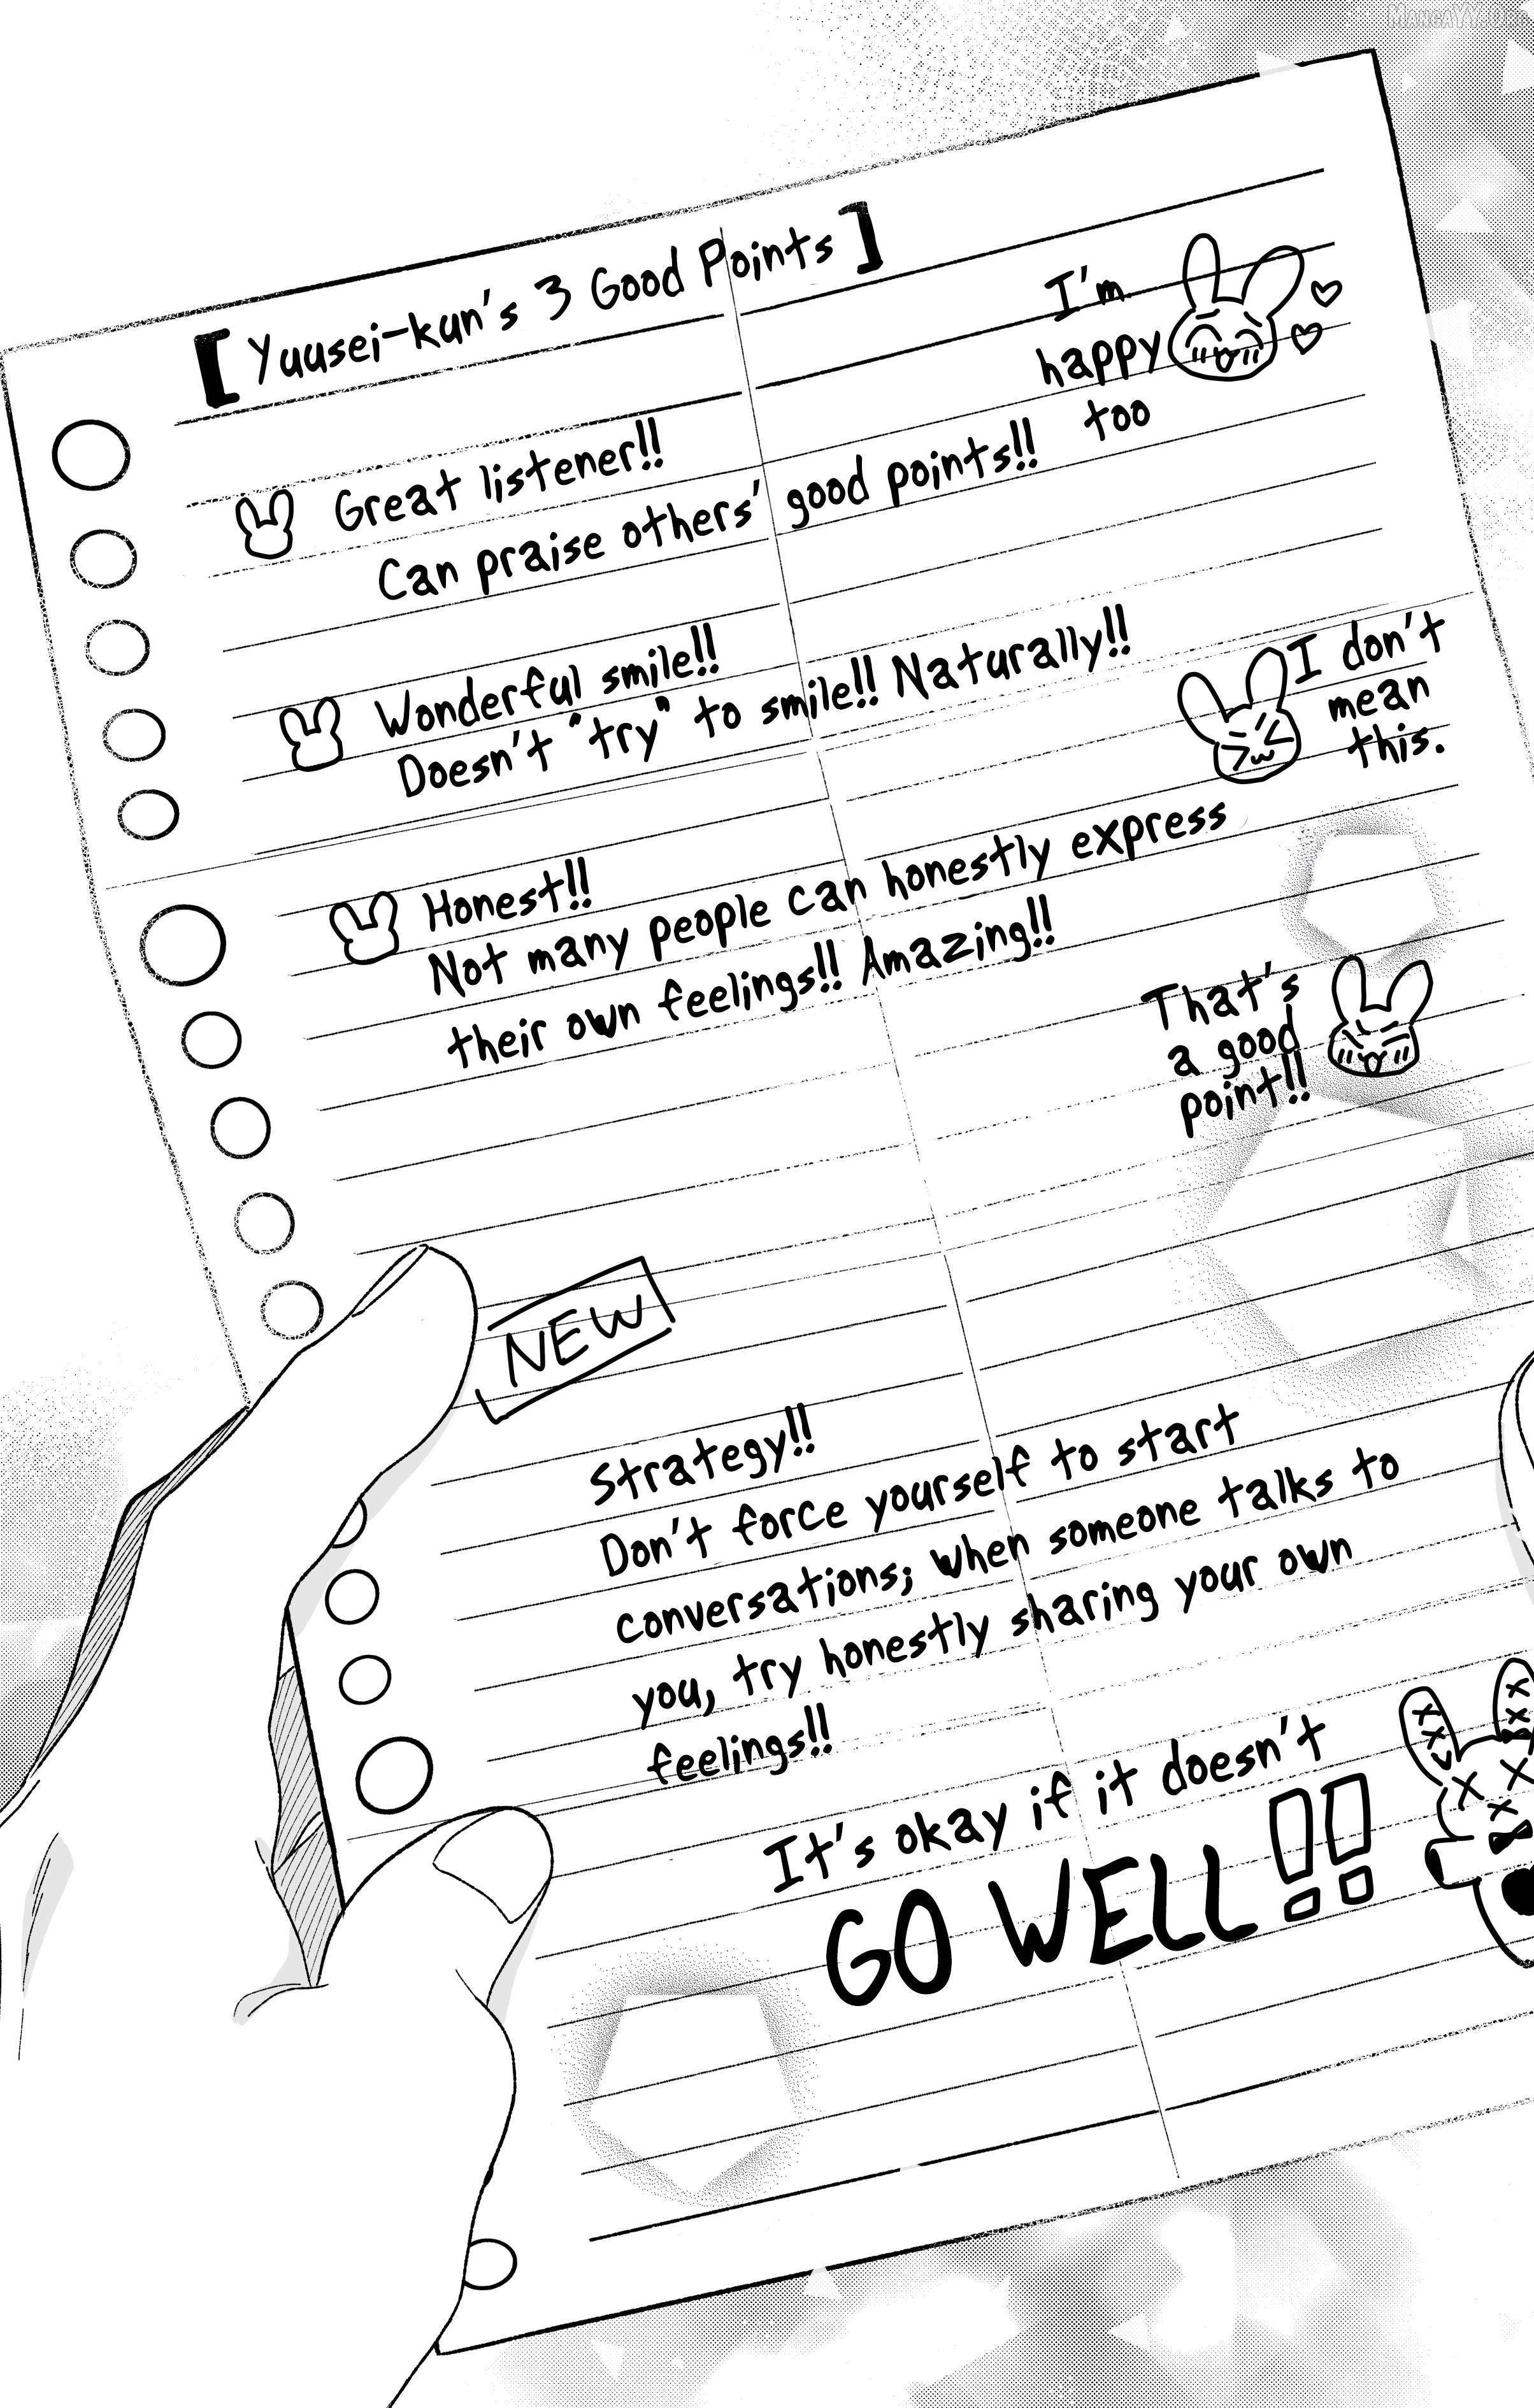 MangaYY.Org
【Yuusei-kun's 3 Good Points】
I'm
happy
too
Great listener!!
Can praise others' good points!!
Wonderful smile!!
Doesn't "try" to smile!! Naturally!!
I don't
mean
this.
Honest!!
Not many people can honestly express
their own feelings!! Amazing!!
That's
a good
point!!
NEW
Strategy!!
Don't force yourself to start
conversations; when someone talks to
you, try honestly sharing your own
feelings!!
It's okay if it doesn't
GO WELL!!